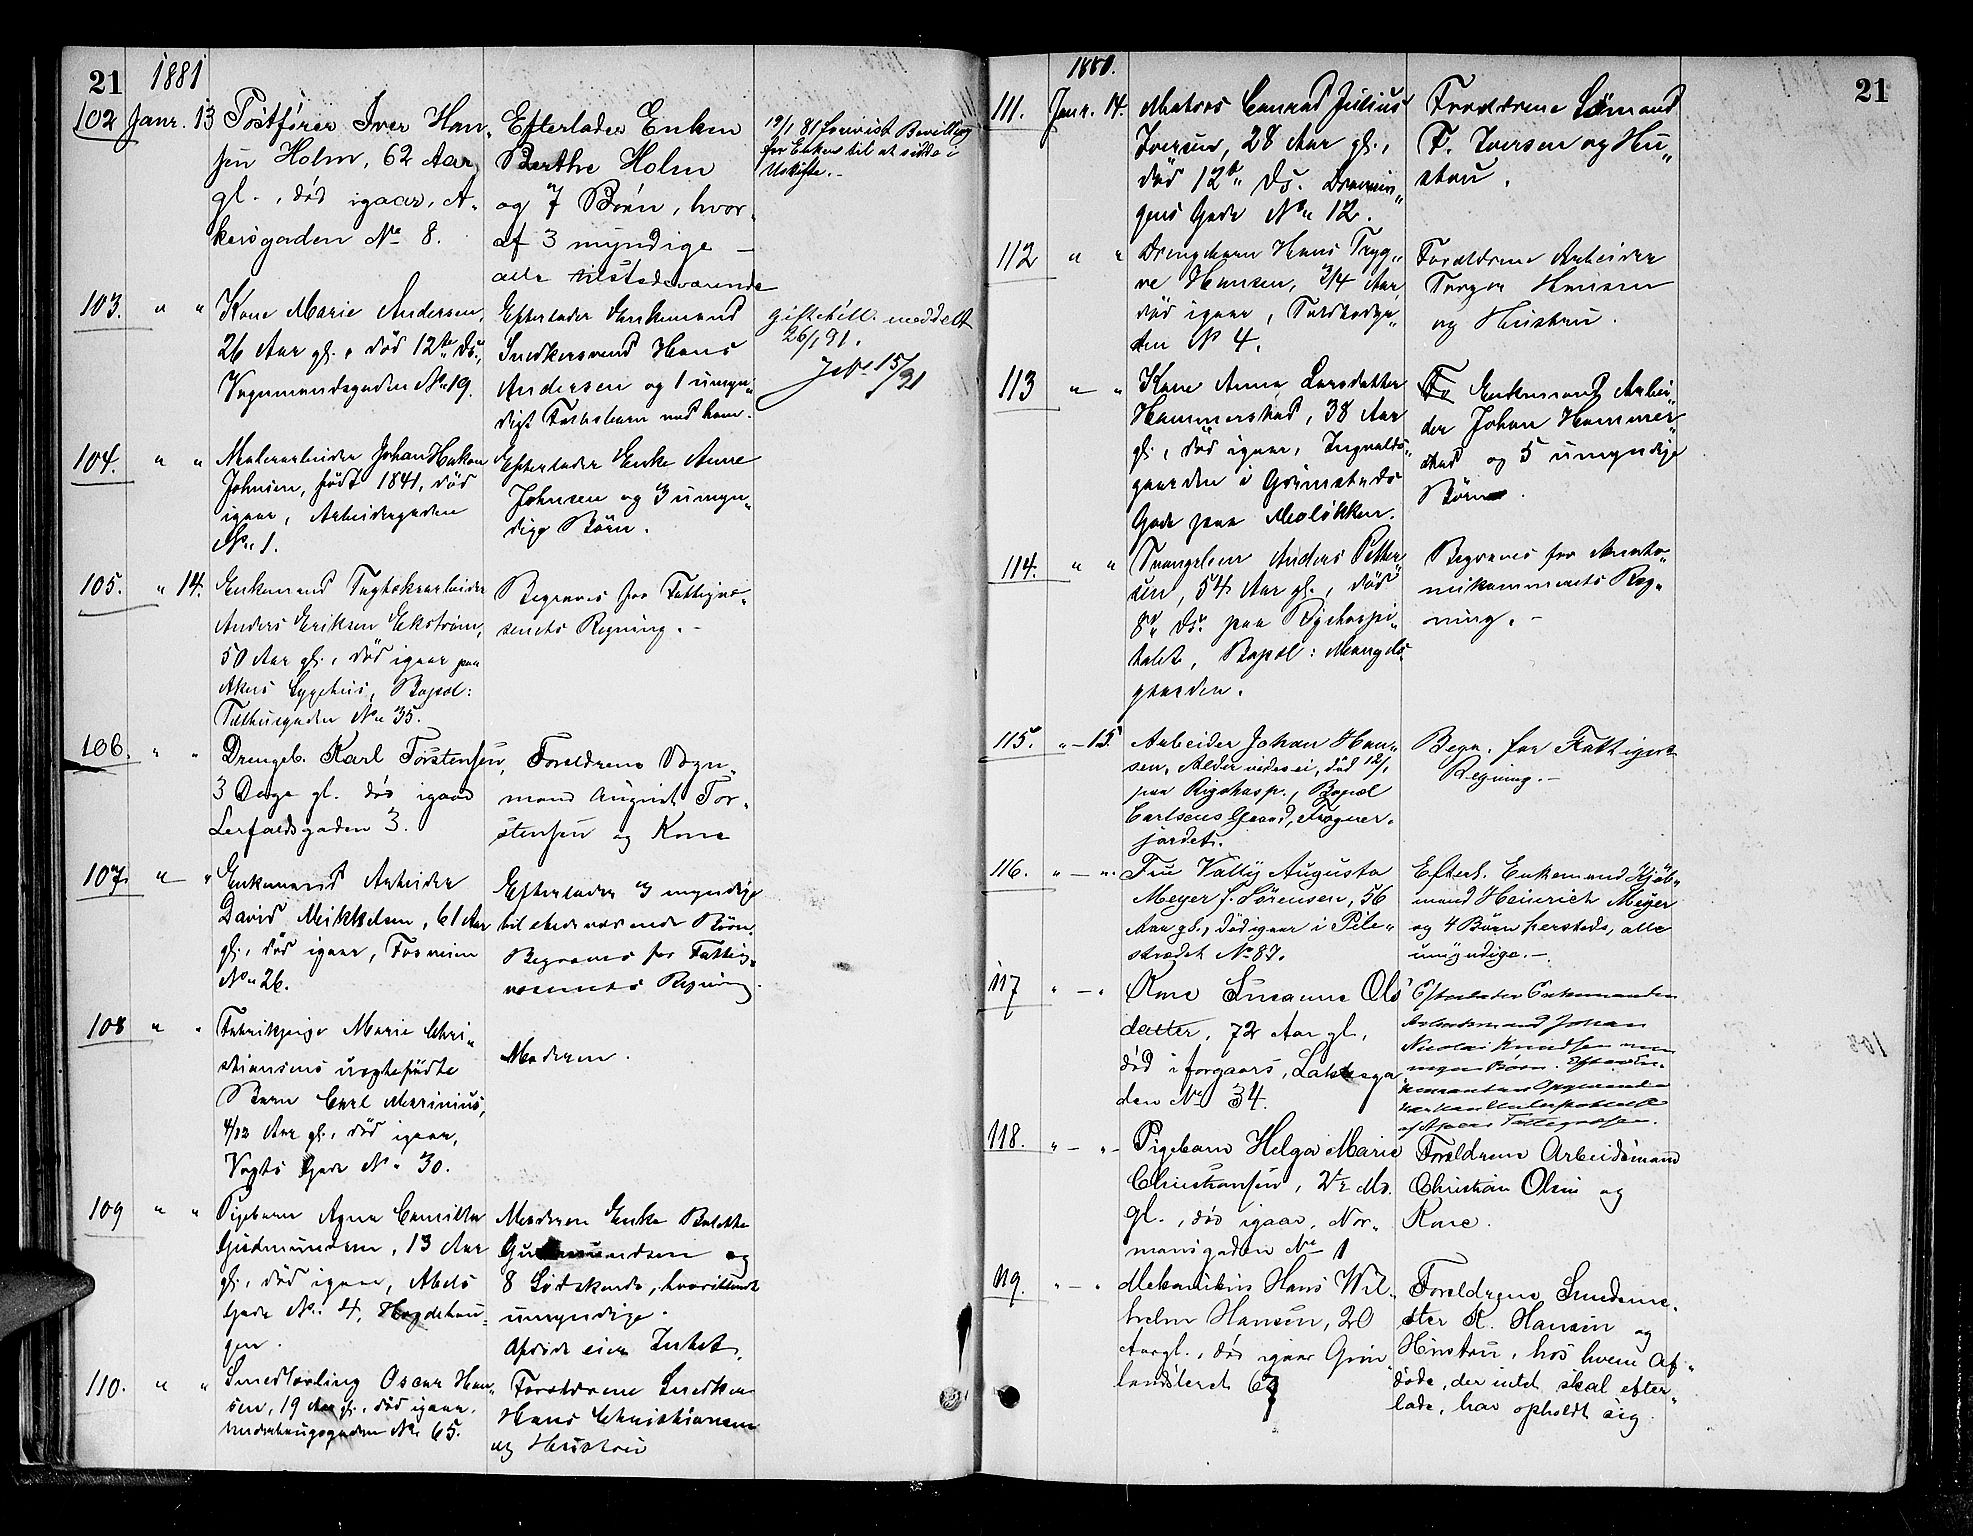 21
1881
102 Janr. 13
Postfører Iver Han-
sen Holm, 62 Aar
gl., død igaar, A-
kersgaden No 8.
Efterlader Enken
Berthe Holm
og 7 Børn, hvor-
af 3 myndige —
alle tilstedeværende
19/1 81 forevist Bevilling
for Enken til at sidde i
Uskifte. —
103. " "
Kone Marie Andersen,
26 Aar gl., død 12te ds.,
Vognmandsgaden No 19.
Efterlader Enkemand
Snedkersvend Hans
Andersen og 1 umyn-
digt Fællesbarn med ham.
giftetill. meddelt
26/1 91.
J.No 15/91
104. " "
Malerarbeider Johan Hakon
Johnsen, født 1841, død
igaar, Arbeidergaden
No 1.
Efterlader Enke Anne
Johnsen og 3 umyn-
dige Børn.
105. " 14.
Enkemand Fagtskarbeider
Anders Eriksen Ekstrøm,
50 Aar gl., død igaar paa
Akers Sygehus, Bopæl:
No 35.
Begraves for Fattigvæ-
senets Regning. —
106. " "
Drengeb. Karl Torstensen,
3 Dage gl. død igaar
Lerfaldsgaden 3.
Forældrene Vogn-
mand August Tor-
stensen og Kone
107. " — "
Enkemand Arbeider
David Mikkelsen, 61 Aar
gl., død igaar, Fosveien
No 26.
Efterlader 3 myndige
tilstedeværende Børn.
Begraves for Fattig-
væsenets Regning.
108 " "
Fabrikpige Marie Chri-
stiansens uægtefødte
Barn Carl Marinius,
4/12 Aar gl., død igaar,
Vogts Gade No 30.
Moderen.
109 " "
Pigebarn Agna Camilla
Gudmundsen, 13 Aar
gl., død igaar, Abels
Gade No 4, Hægdehau-
gen.
Moderen Enke Bolette
Gudmundsen og
8 Sødskende, hvoriblandt
umyndige.
Afdøde eier Intet.
110. " "
Smedlærling Oscar Han-
sen, 19 Aar gl., død igaar,
No 65.
Forældrene Snedker
Hans Christiansen
og Hustru
21
1880.
111. Janr. 14.
Matros Conrad Julius
Iversen, 28 Aar gl.,
død 12te ds. Dronnin-
gens Gade No 12.
Forældrene Sömand
F. Iversen og Hu-
stru.
112 " "
Drengebarn Hans Tryg-
ve Hansen, 3/4 Aar,
død igaar, Toldbodga-
den No 4.
Forældrene Arbeider
Hansen
og Hustru.
113 " — "
Kone Anne Larsdatter
Hammerstad, 38 Aar
gl., død igaar, Ingvalds-
gaarden i Grimstads
Gade paa Meløkken.
Fo Enkemand Arbei-
der Johan Hammer-
stad og 5 umyndige
Børn.
114. " "
Svangelsen Anders Petter-
sen, 54 Aar gl., død
8de ds. paa Rigshospi-
talet, Bopæl: Mangels-
gaarden.
Begraves for Anato-
mikammerets Reg-
ning. —
115. " — 15.
Arbeider Johan Han-
sen, Alder vides ei, død 12/1
paa Rigshosp., Bopæl
Carlsens Gaard, Frogner-
jordet.
Begr. for Fattigv.
Regning. —
116. " — ".
Fru Valtij Augusta
Meyer f. Sørensen, 56
Aar gl., død igaar i Pile-
strædet No 87.
Efterl. Enkemand Kjøb-
mand Heinrich Meyer
og 4 Børn herstede, alle
umyndige. —
117 " — "
Kone Susanne Ols-
datter, 72 Aar gl.
død i forgaars, Lakkega-
den No 34.
Efterlader Enkemanden
Arbeidsmand Johan
Nicolai Knudsen men
ingen Børn. Efter En-
kemandens Opgivende
har han Understøttelse
af Fattigvæsen.
118. " — " —
Pigebarn Helga Marie
Christiansen, 2½ Md.
gl., død igaar, Nor-
mansgaden No 1
Forældrene Arbeidsmand
Christian Olsen og
Kone.
119. " — "
Mekanikus Hans Wil-
helm Hansen, 20
Aar gl., død igaar Grøn-
landsleret 67
Forældrene Smedeme-
ster K. Hansen og
Hustru, hos hvem Af-
døde, der intet skal efter-
lade, har opholdt sig.